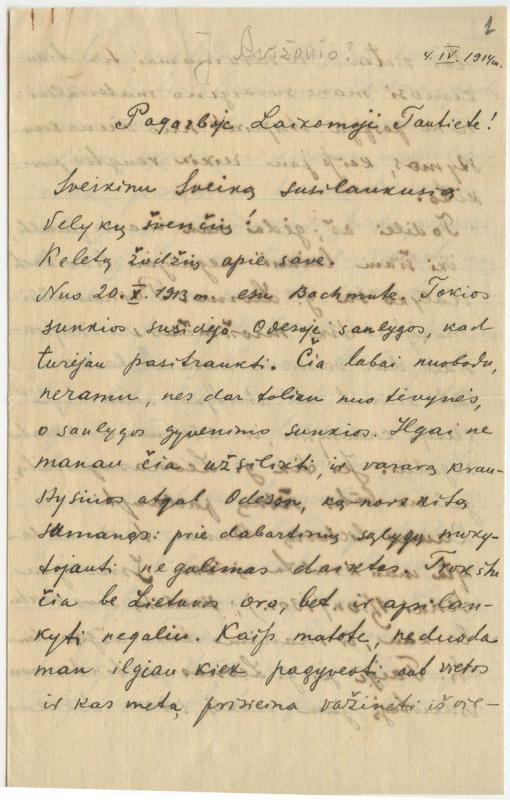 1
J. Avižonio?
4. IV. 1914 m.
Pagarboje Laikomoji Tautiete!
Sveikinu Sveiką susilaukusią
Velykų švenčių!
Keletą žodžių apie save.
Nuo 20. X. 1913 m. esu Bachmute. Tokios
sunkios susidėjo Odesoje sanlygos, kad
turėjau pasitraukti. Čia labai nuobodu,
neramu, nes dar toliau nuo tėvynės,
o sanlygos gyvenimo sunkios. Ilgai ne
manau čia užsilikti, ir vasarą krau-
stysiuos atgal Odeson, ką nors kitą
sumanęs: prie dabartinių sąlygų moky-
tojauti negalimas daiktas. Trokštu
čia be Lietuvos oro, bet ir apsilan-
kyti negaliu. Kaip matote, neduoda
man ilgiau kiek pagyventi ant vietos
ir kas metą prisieina važinėti iš vie-